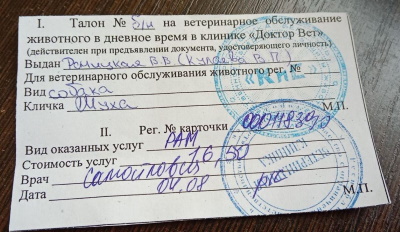 I. Талон № б/н на ветеринарное обслуживание
животного в дневное время в клинике «Доктор Вет»
(действителен при предъявлении документа, удостоверяющего личность)
Выдан В.В. (В.П.)
Для ветеринарного обслуживания животного рег. №
Вид собака
Кличка Муха М.П.
II. Рег. № карточки
Вид оказанных услуг РАМ
Стоимость услуг 16,50
Врач
Дата 04.08 М.П.